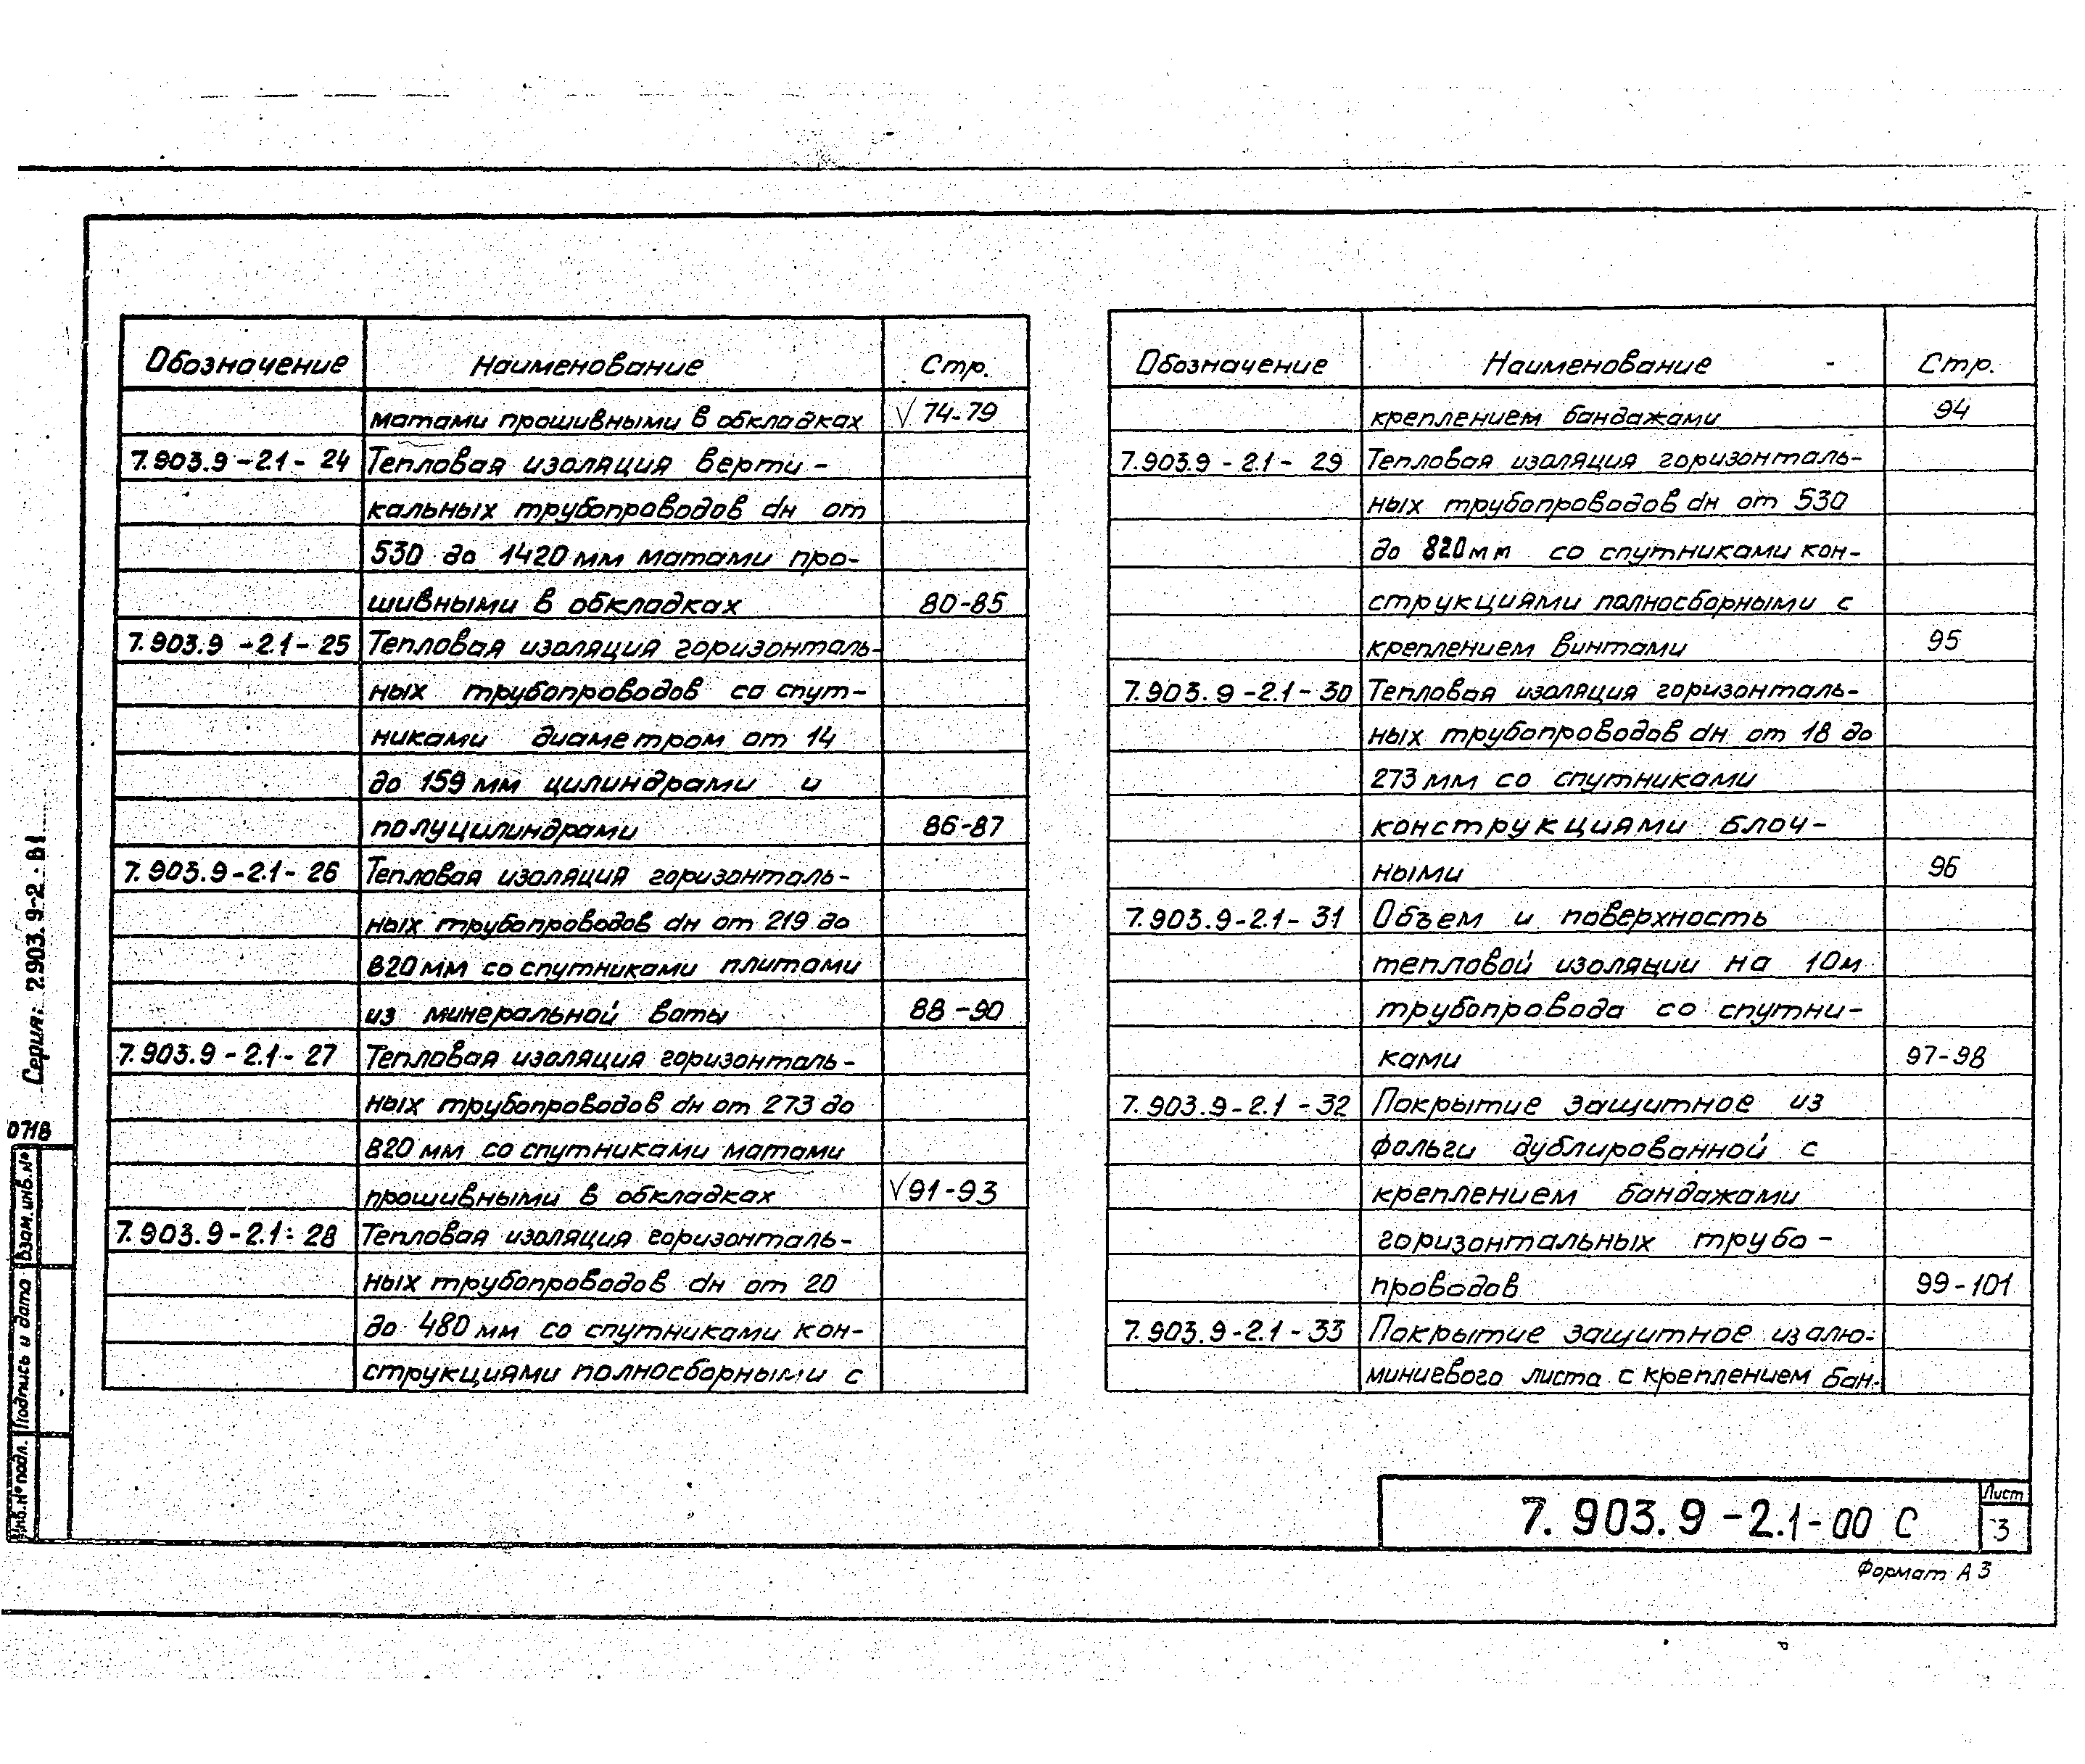 Обозначение Наименование Стр.
матами прошивными в обкладках √ 74-79
7.903.9-2.1-24 Тепловая изоляция верти-
кальных трубопроводов dн от
530 до 1420 мм матами про-
шивными в обкладках 80-85
7.903.9-2.1-25 Тепловая изоляция горизонталь-
ных трубопроводов со спут-
никами диаметром от 14
до 159 мм цилиндрами и
полуцилиндрами 86-87
7.903.9-2.1-26 Тепловая изоляция горизонталь-
ных трубопроводов dн от 219 до
820 мм со спутниками плитами
из минеральной ваты 88-90
7.903.9-2.1-27 Тепловая изоляция горизонталь-
ных трубопроводов dн от 273 до
820 мм со спутниками матами
прошивными в обкладках √ 91-93
7.903.9-2.1-28 Тепловая изоляция горизонталь-
ных трубопроводов dн от 20
до 480 мм со спутниками кон-
струкциями полносборными с
Обозначение Наименование Стр.
креплением бандажами 94
7.903.9-2.1-29 Тепловая изоляция горизонталь-
ных трубопроводов dн от 530
до 820 мм со спутниками кон-
струкциями полносборными с
креплением винтами 95
7.903.9-2.1-30 Тепловая изоляция горизонталь-
ных трубопроводов dн от 18 до
273 мм со спутниками
конструкциями блоч-
ными 96
7.903.9-2.1-31 Объем и поверхность
тепловой изоляции на 10м
трубопровода со спутни-
ками 97-98
7.903.9-2.1-32 Покрытие защитное из
фольги дублированной с
креплением бандажами
горизонтальных трубо-
проводов 99-101
7.903.9-2.1-33 Покрытие защитное из алю-
миниевого листа с креплением бан-
Серия: 2.903.9-2 . В1
0718
Взам.инв.№
Подпись и дата
Инв.№ подл.
7.903.9-2.1-00 С
Лист
3
Формат А3